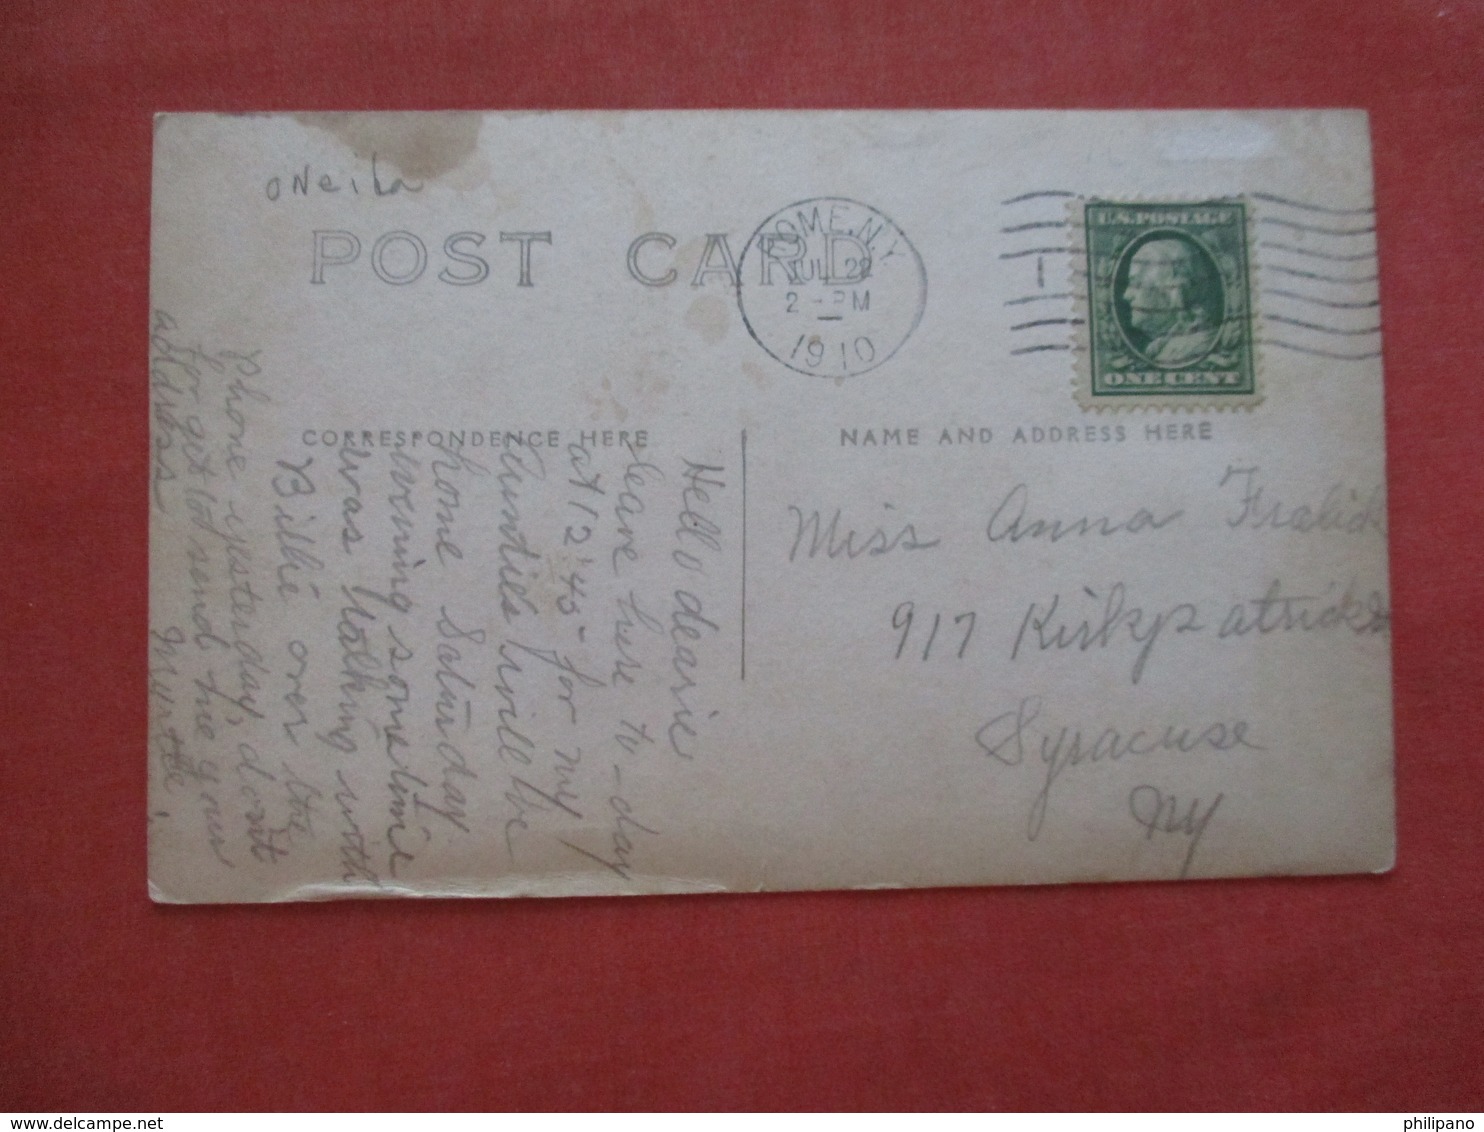 oNeida
POST CARD
ROME, N.Y.
JUL 22
2 - PM
1910
U.S. POSTAGE
ONE CENT
CORRESPONDENCE HERE
NAME AND ADDRESS HERE
Hello dearie
leave here to-day
at 12'45" for my
Aunties will be
home Saturday
evening sometime
was talking with
Billie over the
phone yesterday, dont
forget to send me your
address Myrtle.
Miss Anna Fralick
917 Kirkpatrick St
Syracuse
NY
philipano